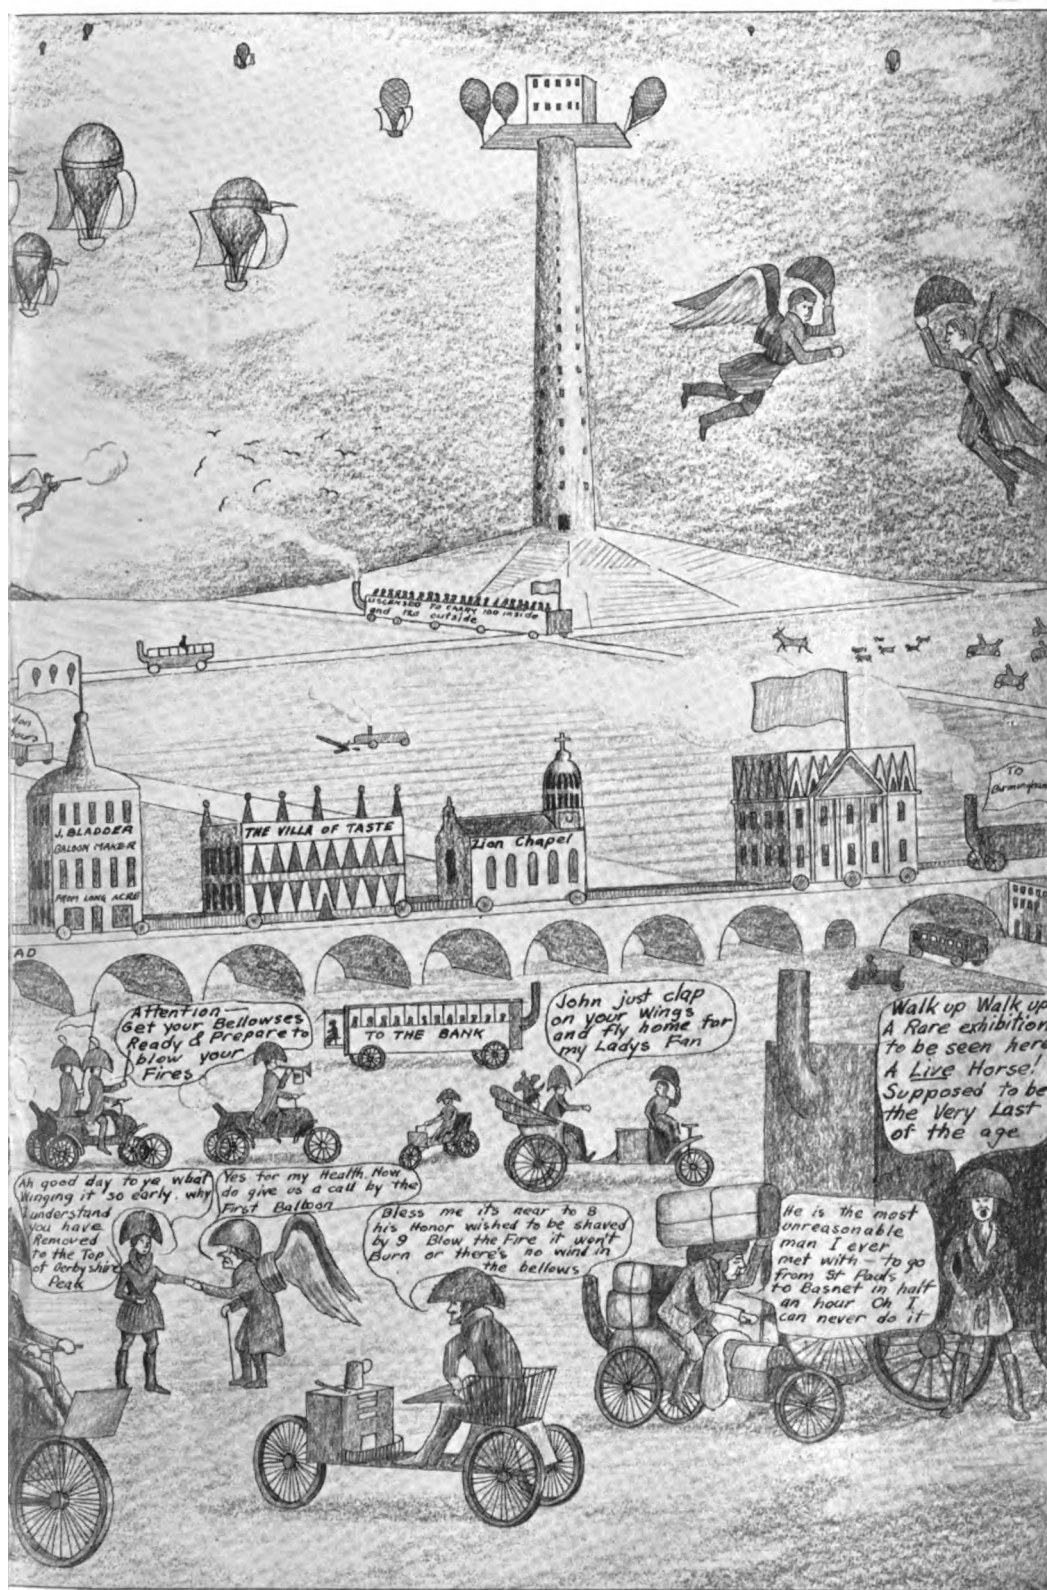 LISCENSED TO CARRY 100 inside
and 120 outside
don
hours
J. BLADDER
BALOON MAKER
FROM LONG ACRE
THE VILLA OF TASTE
Zion Chapel
TO
Birmingham
AD
Attention —
Get your Bellowses
Ready & Prepare to
blow your
Fires
TO THE BANK
John just clap
on your Wings
and fly home for
my Ladys Fan
Walk up Walk up
A Rare exhibition
to be seen here
A Live Horse!
Supposed to be
the Very Last
of the age
Ah good day to ya what
Winging it so early. why
I understand
you have
Removed
to the Top
of Derbyshire
Peak
Yes for my Health. Now
do give us a call by the
First Balloon
Bless me its near to 8
his Honor wished to be shaved
by 9 Blow the Fire it won't
Burn or there's no wind in
the bellows
He is the most
unreasonable
man I ever
met with — to go
from St Pauls
to Basnet in half
an hour Oh I
can never do it